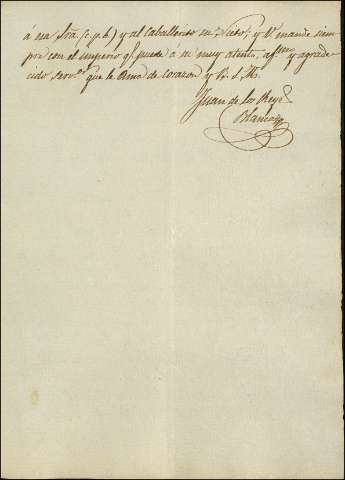 á esa Sra. (c. p. b.) y al Caballerito su Nieto; y V. mande siem
pre con el imperio q.e puede á su muy atento, af.mo y agrade
cido serv.or que le Ama de corazon y B. S. M.
Juan de los Reyes
Blancas